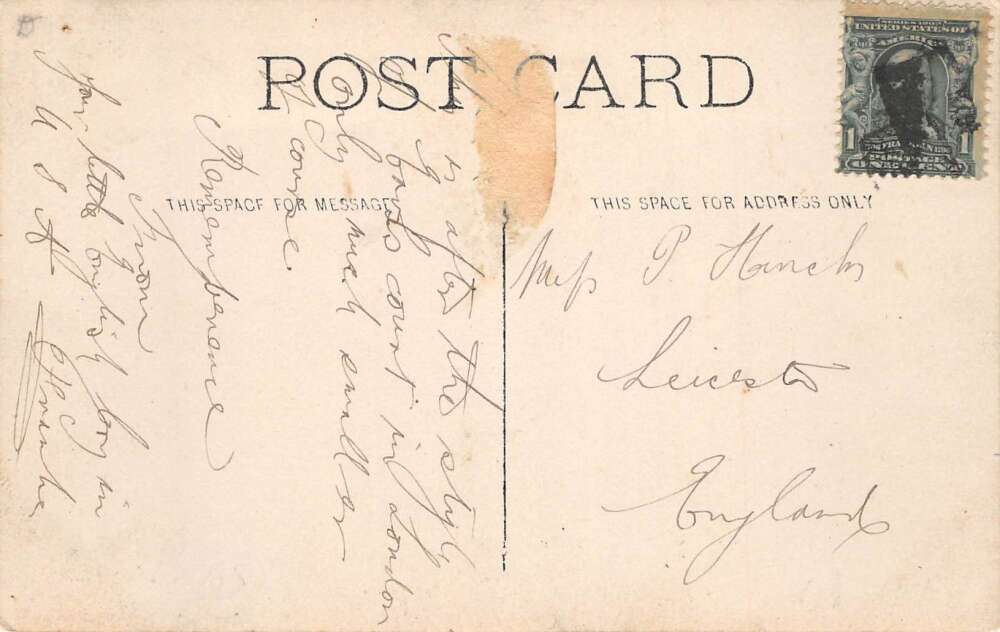 POST CARD
THIS SPACE FOR MESSAGE
THIS SPACE FOR ADDRESS ONLY
SERIES 1902
UNITED STATES OF
AMERICA
1 1
FRANKLIN
POSTAGE
ONE CENT
is after the style
of Earls court in London
only much smaller
of course.
Remembence
From
your little english boy in
U S A
Miss P. Hinch
Leicester
England